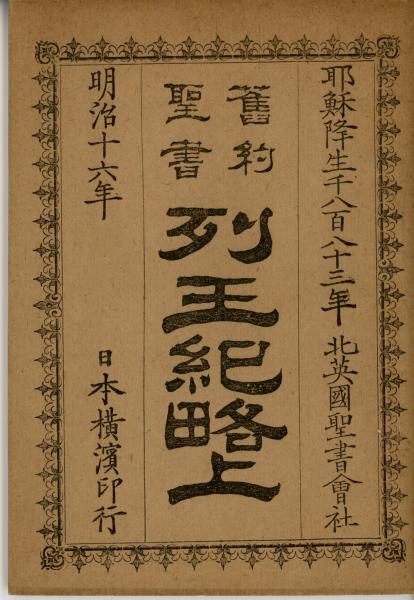 耶穌降生千八百八十三年 北英國聖書會社
舊約
聖書
列王紀略上
明治十六年 日本橫濱印行